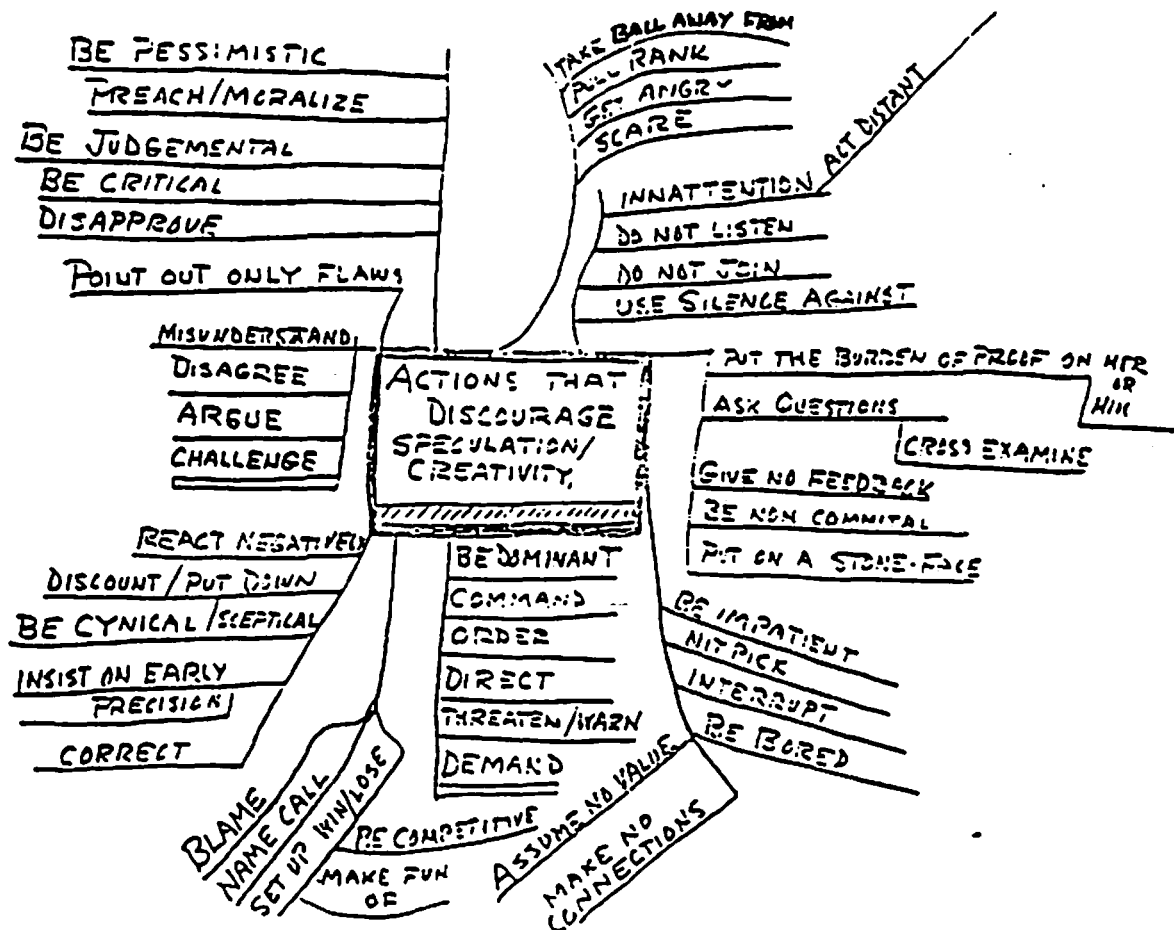 BE PESSIMISTIC
PREACH/MORALIZE
BE JUDGEMENTAL
BE CRITICAL
DISAPPROVE
POINT OUT ONLY FLAWS
TAKE BALL AWAY FROM
PULL RANK
GET ANGRY
SCARE
INNATTENTION
ACT DISTANT
DO NOT LISTEN
DO NOT JOIN
USE SILENCE AGAINST
MISUNDERSTAND
DISAGREE
ARGUE
CHALLENGE
ACTIONS THAT
DISCOURAGE
SPECULATION/
CREATIVITY
PUT THE BURDEN OF PROOF ON HER
OR
HIM
ASK QUESTIONS
CROSS EXAMINE
GIVE NO FEEDBACK
BE NON COMMITAL
PUT ON A STONE-FACE
REACT NEGATIVELY
DISCOUNT/PUT DOWN
BE CYNICAL/SCEPTICAL
INSIST ON EARLY
PRECISION
CORRECT
BE DOMINANT
COMMAND
ORDER
DIRECT
THREATEN/WARN
DEMAND
BE IMPATIENT
NITPICK
INTERRUPT
BE BORED
BLAME
NAME CALL
SET UP WIN/LOSE
BE COMPETITIVE
MAKE FUN
OF
ASSUME NO VALUE
MAKE NO
CONNECTIONS